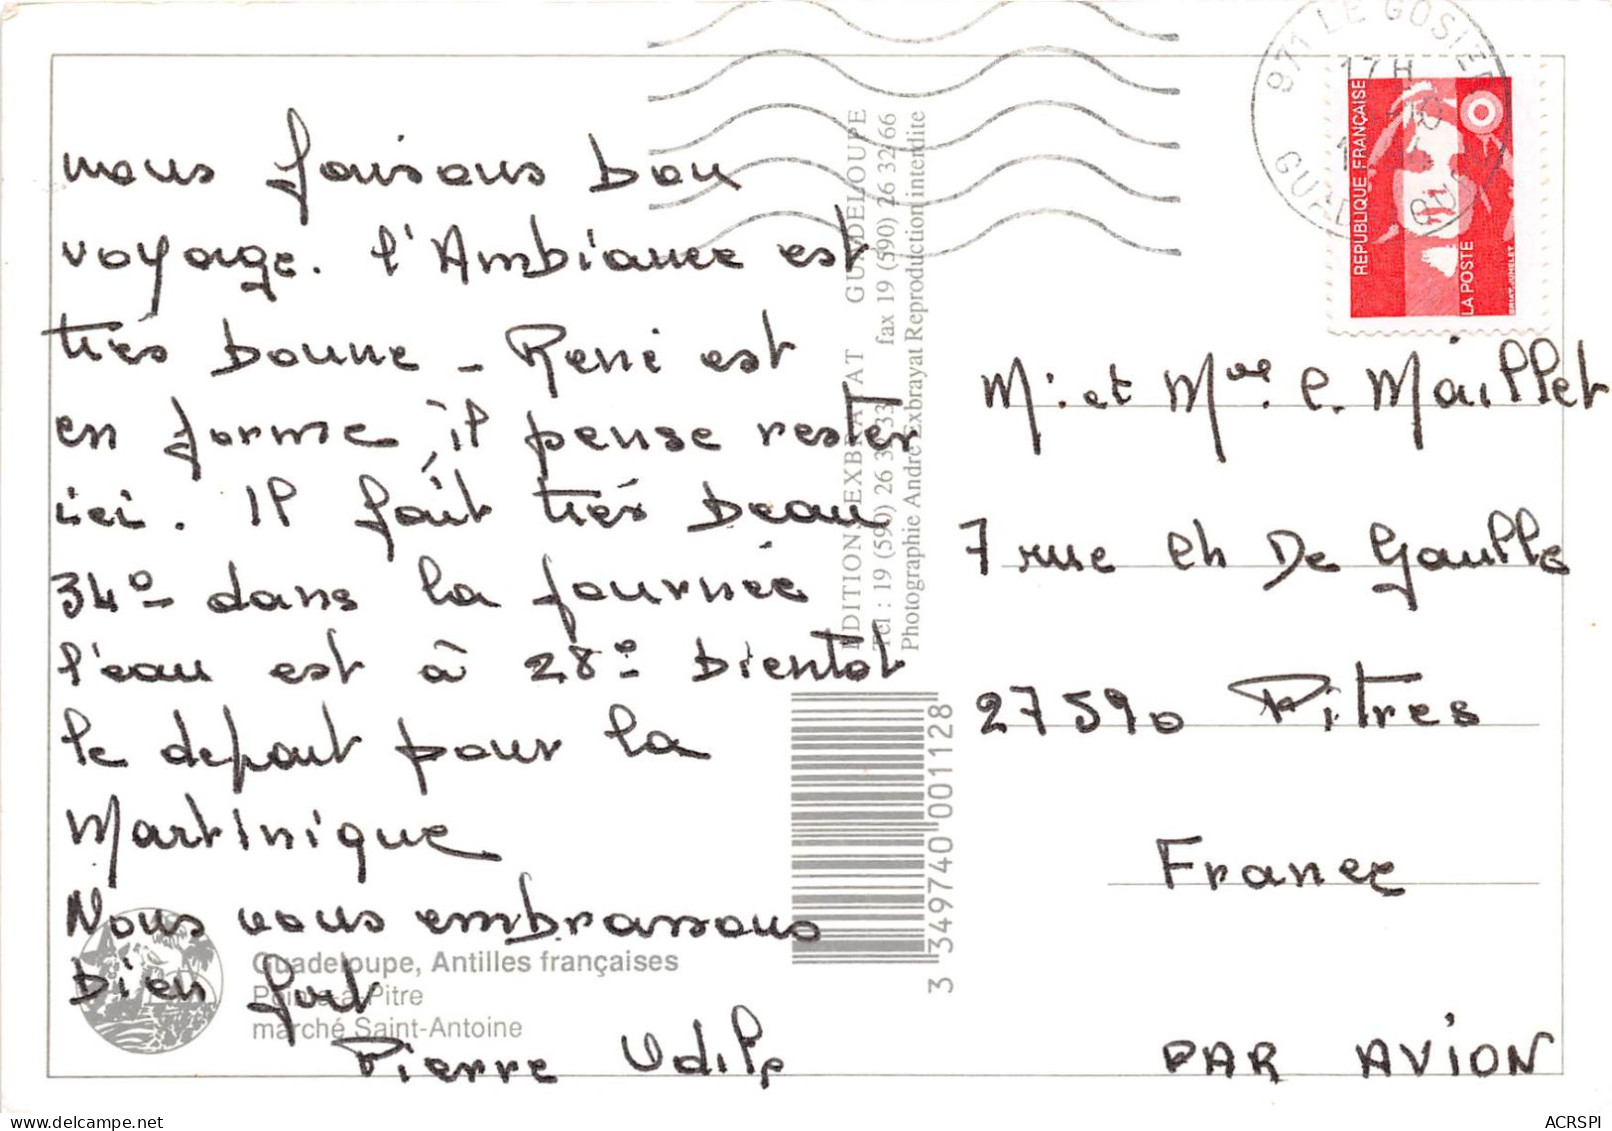 nous faisons bon
voyage. l'Ambiance est
très bonne - René est
en forme, il pense rester
ici. Il fait très beau
34° dans la journée
l'eau est à 28° bientot
le depart pour la
Martinique
Nous vous embrassons
bien fort
Pierre Odile
Guadeloupe, Antilles françaises
Pointe-à-Pitre
marché Saint-Antoine
EDITIONS EXBRAYAT GUADELOUPE
fax 19 (590) 26 32 66
Photographie André Exbrayat Reproduction interdite
3 349740 001128
971 LE GOSIER
17 H
GUADELOUPE
REPUBLIQUE FRANÇAISE
LA POSTE
M. et Mme C. Maillet
7 rue Ch De Gaulle
27590 Pitres
France
PAR AVION
ACRSPI